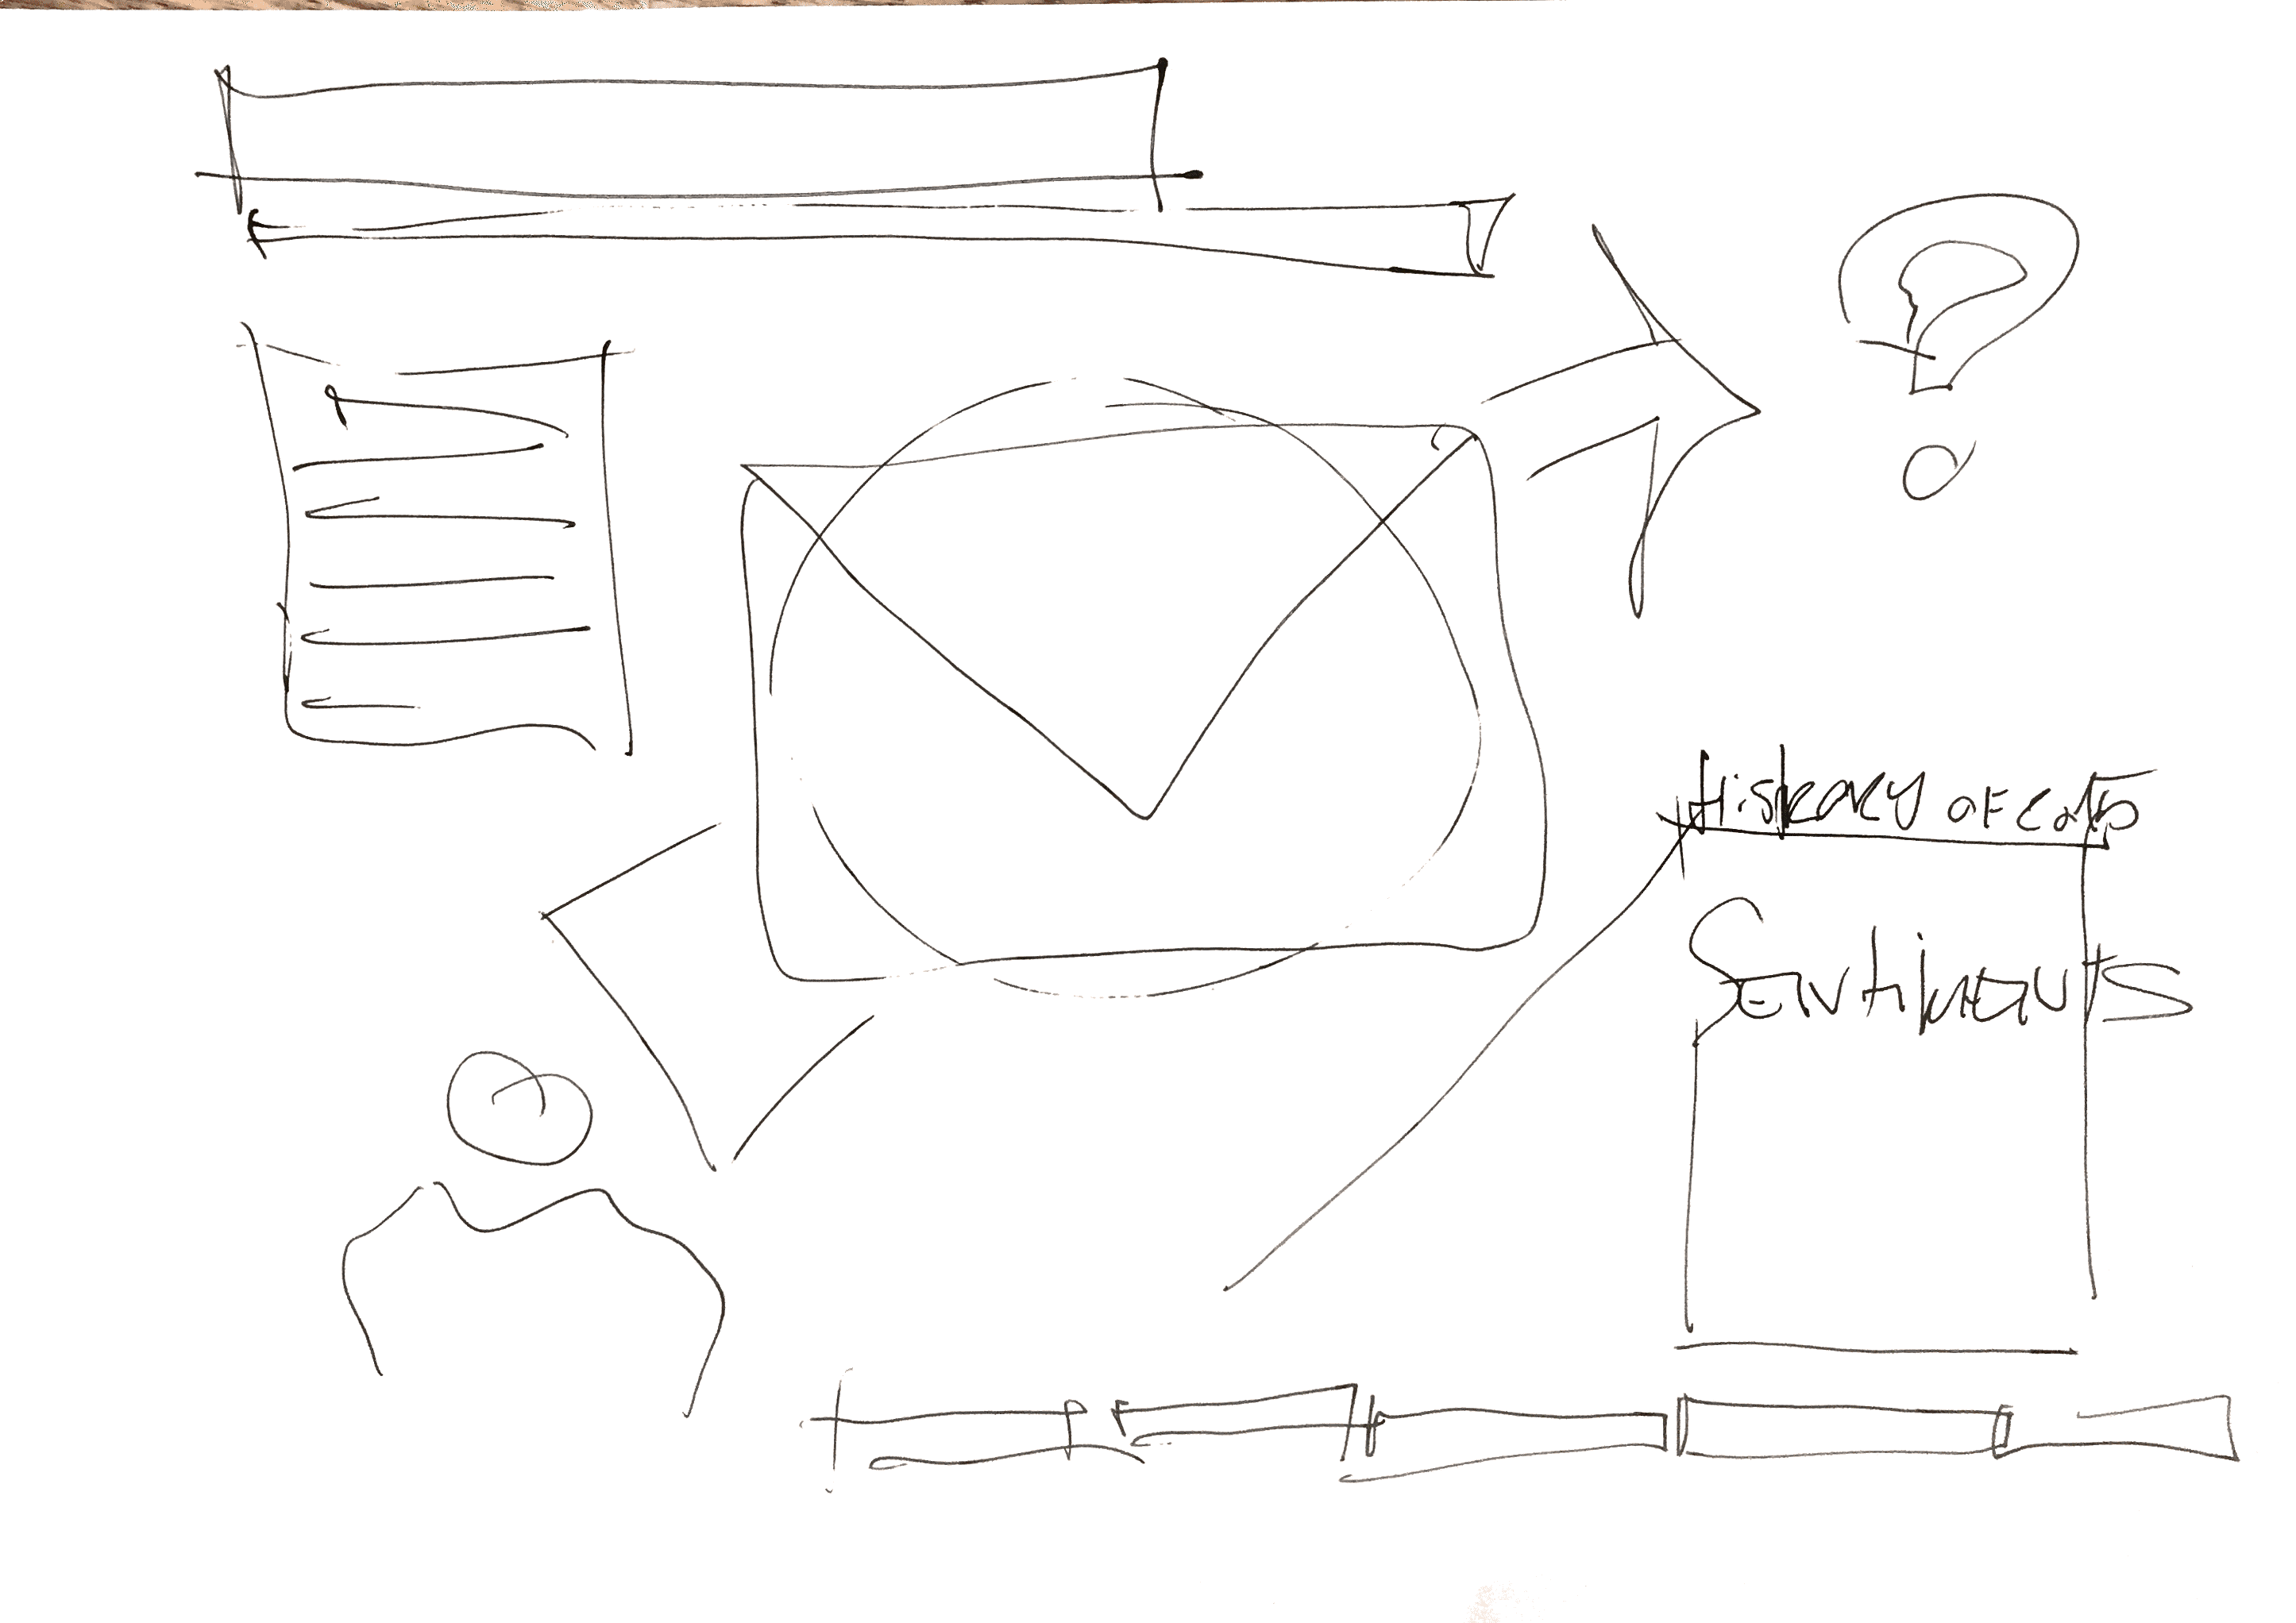 History of cats
Sentiments